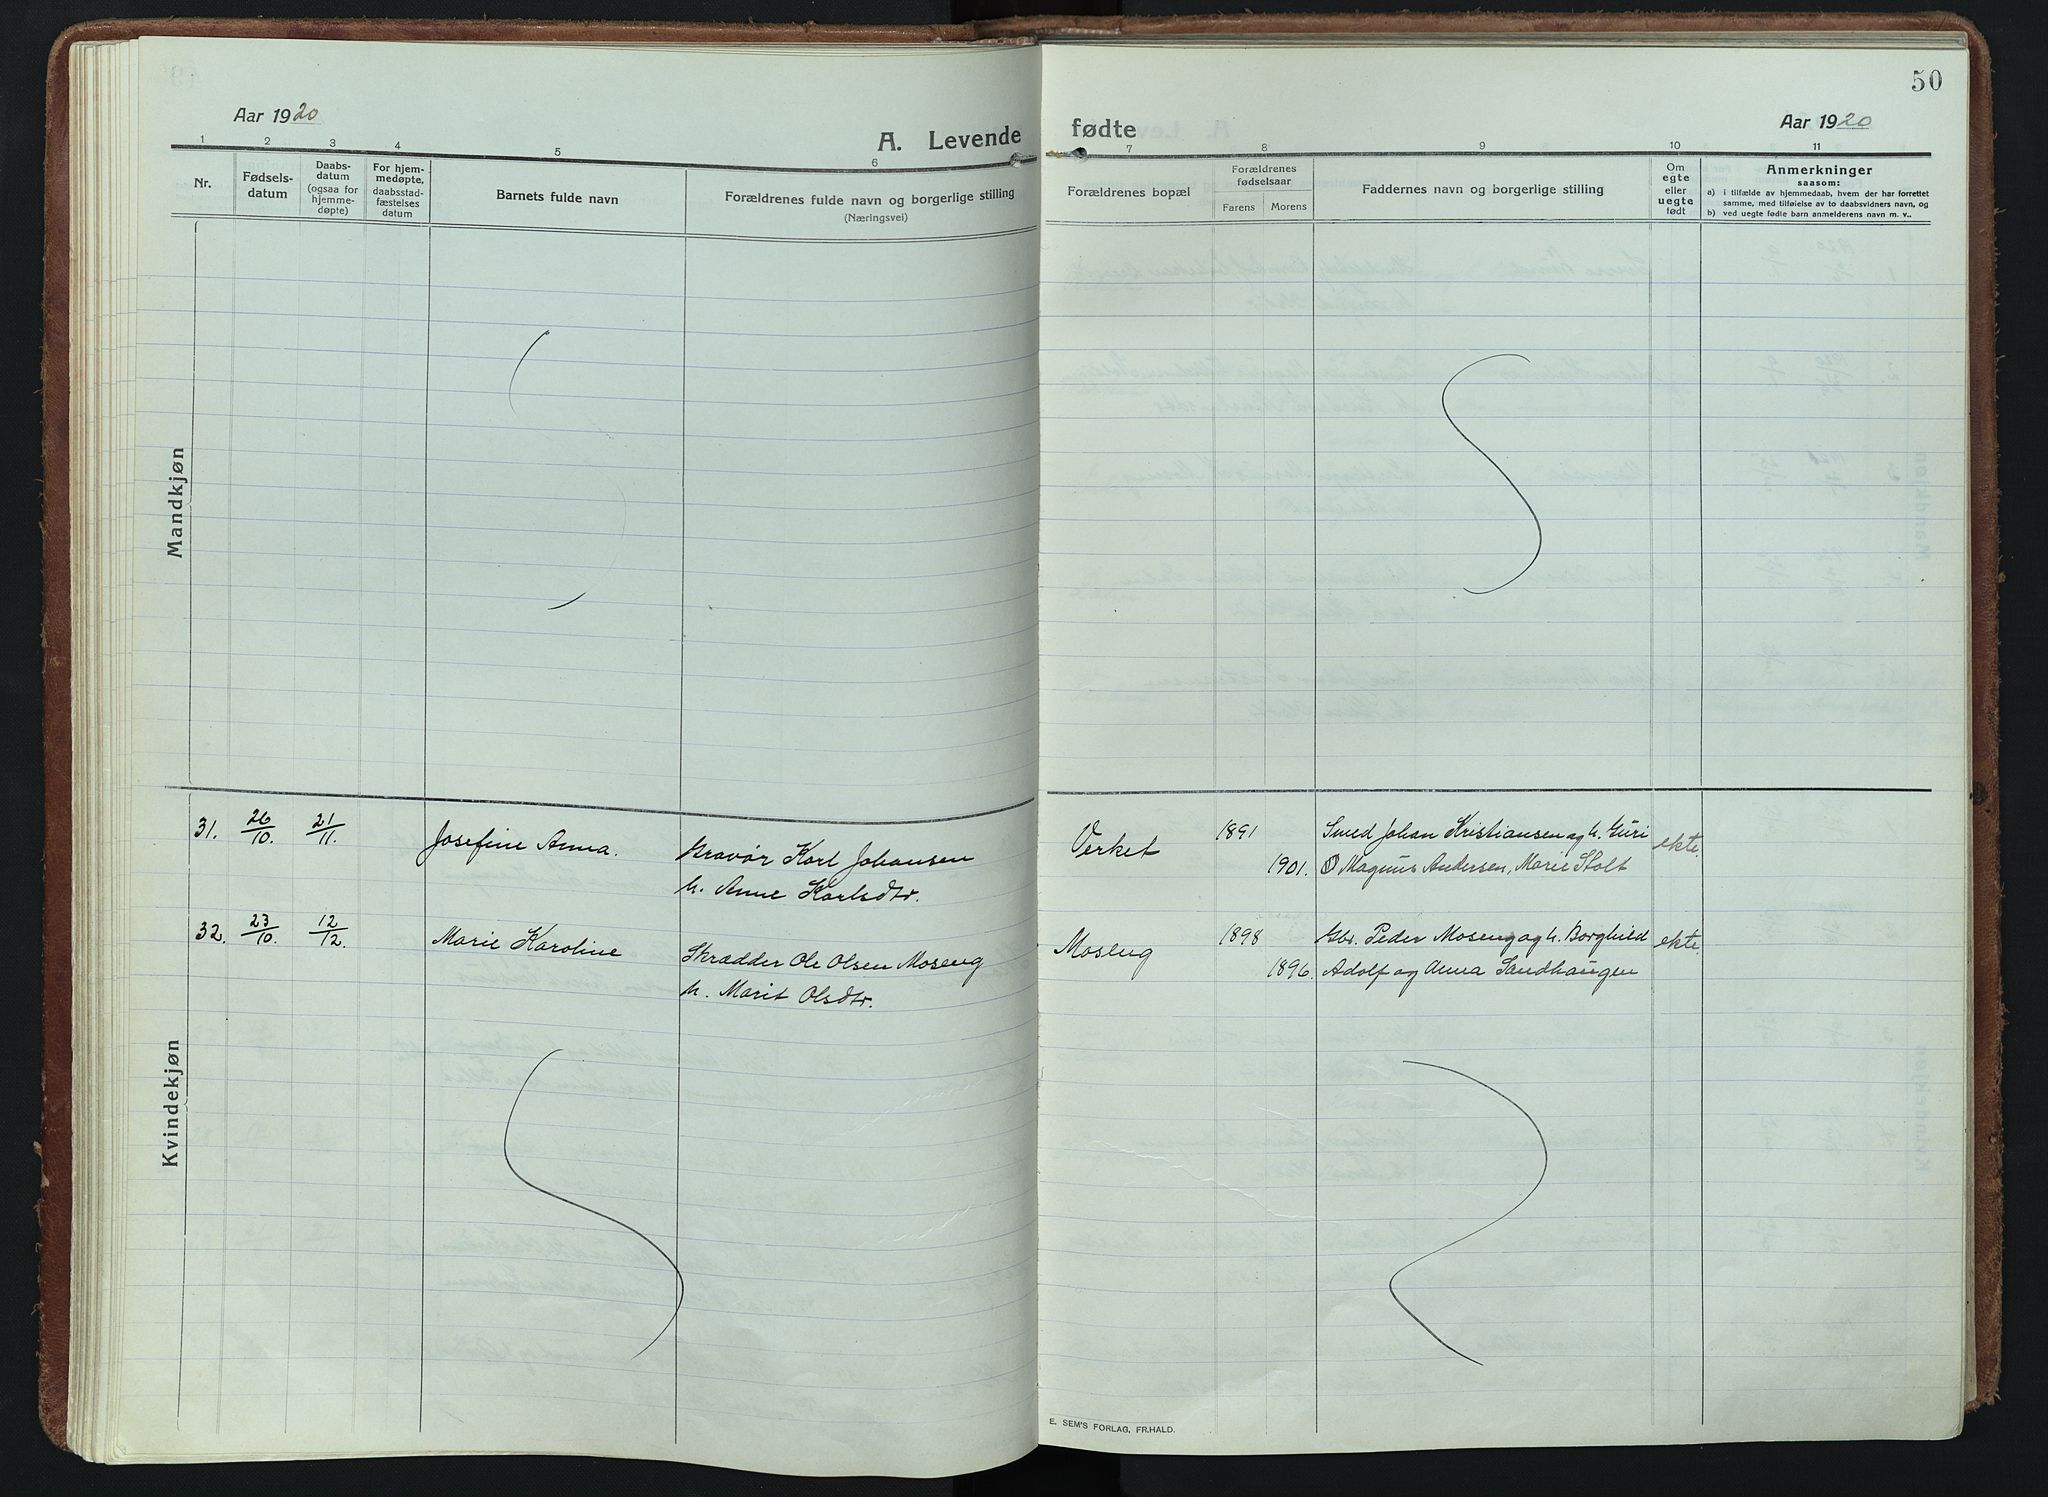 50
Aar 1920
A. Levende
fødte
Aar 1920
1 2 3 4 5 6 7 8 9 10 11
Nr.
Fødsels-
datum
Daabs-
datum
(ogsaa for
hjemme-
døpte)
For hjem-
medøpte,
daabsstad-
fæstelses
datum
Barnets fulde navn
Forældrenes fulde navn og borgerlige stilling
(Næringsvei)
Forældrenes bopæl
Forældrenes
fødselsaar
Farens Morens
Faddernes navn og borgerlige stilling
Om
egte
eller
uegte
født
Anmerkninger
saasom:
a) i tilfælde av hjemmedaab, hvem der har forrettet
samme, med tilføielse av to daabsvidners navn, og
b) ved uegte fødte barn anmelderens navn m. v..
Mandkjøn
Kvindekjøn
31. 26/10. 21/11. Josefine Anna. Kravør Karl Johansen Verket 1891 Smed Johan Kristiansen og h. Guri ekte.
h. Anne Karlsdtr. 1901. O Magnus Andersen, Marie Stolt
32. 23/10. 12/12. Marie Karoline Skrædder Ole Olsen Moseng Moseng 1898 Gbr. Peder Moseng og h. Borghild ekte.
h. Marit Olsdtr. 1896. Adolf og Anna Sandhaugen
E. SEM'S FORLAG, FR.HALD.